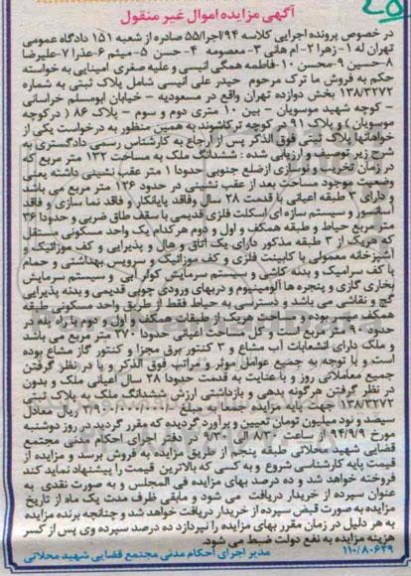 آگهی مزایده اموال غیر منقول
در خصوص پرونده اجرایی کلاسه ۹۴اجرا۵۵ صادره از شعبه ۱۵۱ دادگاه عمومی
تهران له ۱-زهرا ۲-ام هانی ۳-معصومه ۴-حسن ۵-میثم ۶-عذرا ۷-علیرضا
۸-حسین ۹-محسن ۱۰-فاطمه همگی انیسی و علیه صفری امینایی به خواسته
حکم به فروش ما ترک مرحوم حیدر علی انیسی شامل پلاک ثبتی به شماره
۱۳۸/۳۲۷۲ بخش دوازده تهران واقع در مسعودیه - خیابان ابومسلم خراسانی
- کوچه شهید موسویان - بین ۱۰ متری دوم و سوم - پلاک ۸۶ (درکوچه
موسویان) و پلاک ۹۱ در کوچه ترکاشوند به همین منظور به درخواست یکی از
خواهانها پلاک ثبتی فوق الذکر پس از ارجاع به کارشناس رسمی دادگستری به
شرح زیر توصیف و ارزیابی شده : ششدانگ ملک به مساحت ۱۳۲ متر مربع که
در زمان تخریب و نوسازی ازضلع جنوبی حدودا ۱ متر عقب نشینی داشته یعنی
وضعیت موجود مساحت بعد از عقب نشینی در حدود ۱۲۶ متر مربع می باشد
و دارای ۳ طبقه اعیانی با قدمت ۲۸ سال وفاقد پایانکار و فاقد نما سازی و فاقد
آسانسور و سیستم سازه ای اسکلت فلزی قدیمی با سقف طاق ضربی و حدودا ۳۶
متر مربع حیاط و طبقه همکف و اول و دوم هرکدام یک واحد مسکونی مستقل
که هریک از ۳ طبقه مذکور دارای یک اتاق و هال و پذیرایی و کف موزائیک و
آشپزخانه معمولی با کابینت فلزی و کف موزائیک و سرویس بهداشتی و حمام
با کف سرامیک و بدنه کاشی و سیستم سرمایش کولر آبی و سیستم سرمایش
بخاری گازی و پنجره ها آلومینیوم و دربهای ورودی چوبی قدیمی و بدنه پذیرایی
گچ و نقاشی می باشد و دسترسی به حیاط فقط از طریق واحد مسکونی طبقه
همکف میسر بوده و مساحت هریک از طبقات همکف و اول و دوم با راه پله در
حدود ۹۰ متر مربع است و کل مساحت اعیانی حدودا ۲۷۰ متر مربع می باشد
و ملک دارای انشعابات آب مشاع و ۳ کنتور برق مجزا و کنتور گاز مشاع بوده
است و با توجه به جمیع عوامل موثر و مراتب فوق الذکر و با در نظر گرفتن
جمیع معاملاتی روز و با عنایت به قدمت حدودا ۲۸ سال اعیانی ملک و بدون
در نظر گرفتن هرگونه بدهی و بازداشتی ارزش ششدانگ ملک به پلاک ثبتی
۱۳۸/۳۲۷۲ جهت پایه مزایده جمعا به مبلغ ۳/۹۰۰/۰۰۰/۰۰۰ ریال معادل
سیصد و نود میلیون تومان تعیین و برآورد گردیده که مقرر گردید در روز دوشنبه
مورخ ۹۴/۹/۹ ساعت ۸/۳۰ الی ۹/۳۰ در دفتر اجرای احکام مدنی مجتمع
قضایی شهید محلاتی طبقه پنجم از طریق مزایده به فروش برسد و مزایده از
قیمت پایه کارشناسی شروع و به کسی که بالاترین قیمت را پیشنهاد نماید کند
فروخته خواهد شد و ده درصد بهای مزایده فی المجلس و به صورت نقدی به
عنوان سپرده از خریدار دریافت می شود و مابقی ظرف مدت یک ماه از تاریخ
مزایده به صورت قبض سپرده از خریدار دریافت خواهد شد و چنانچه برنده مزایده
به هر دلیل در زمان مقرر بهای مزایده را نپردازد ده درصد سپرده وی پس از کسر
هزینه مزایده به نفع دولت ضبط می شود.
۱۱۰/۸۰۶۴۹ مدیر اجرای احکام مدنی مجتمع قضایی شهید محلاتی